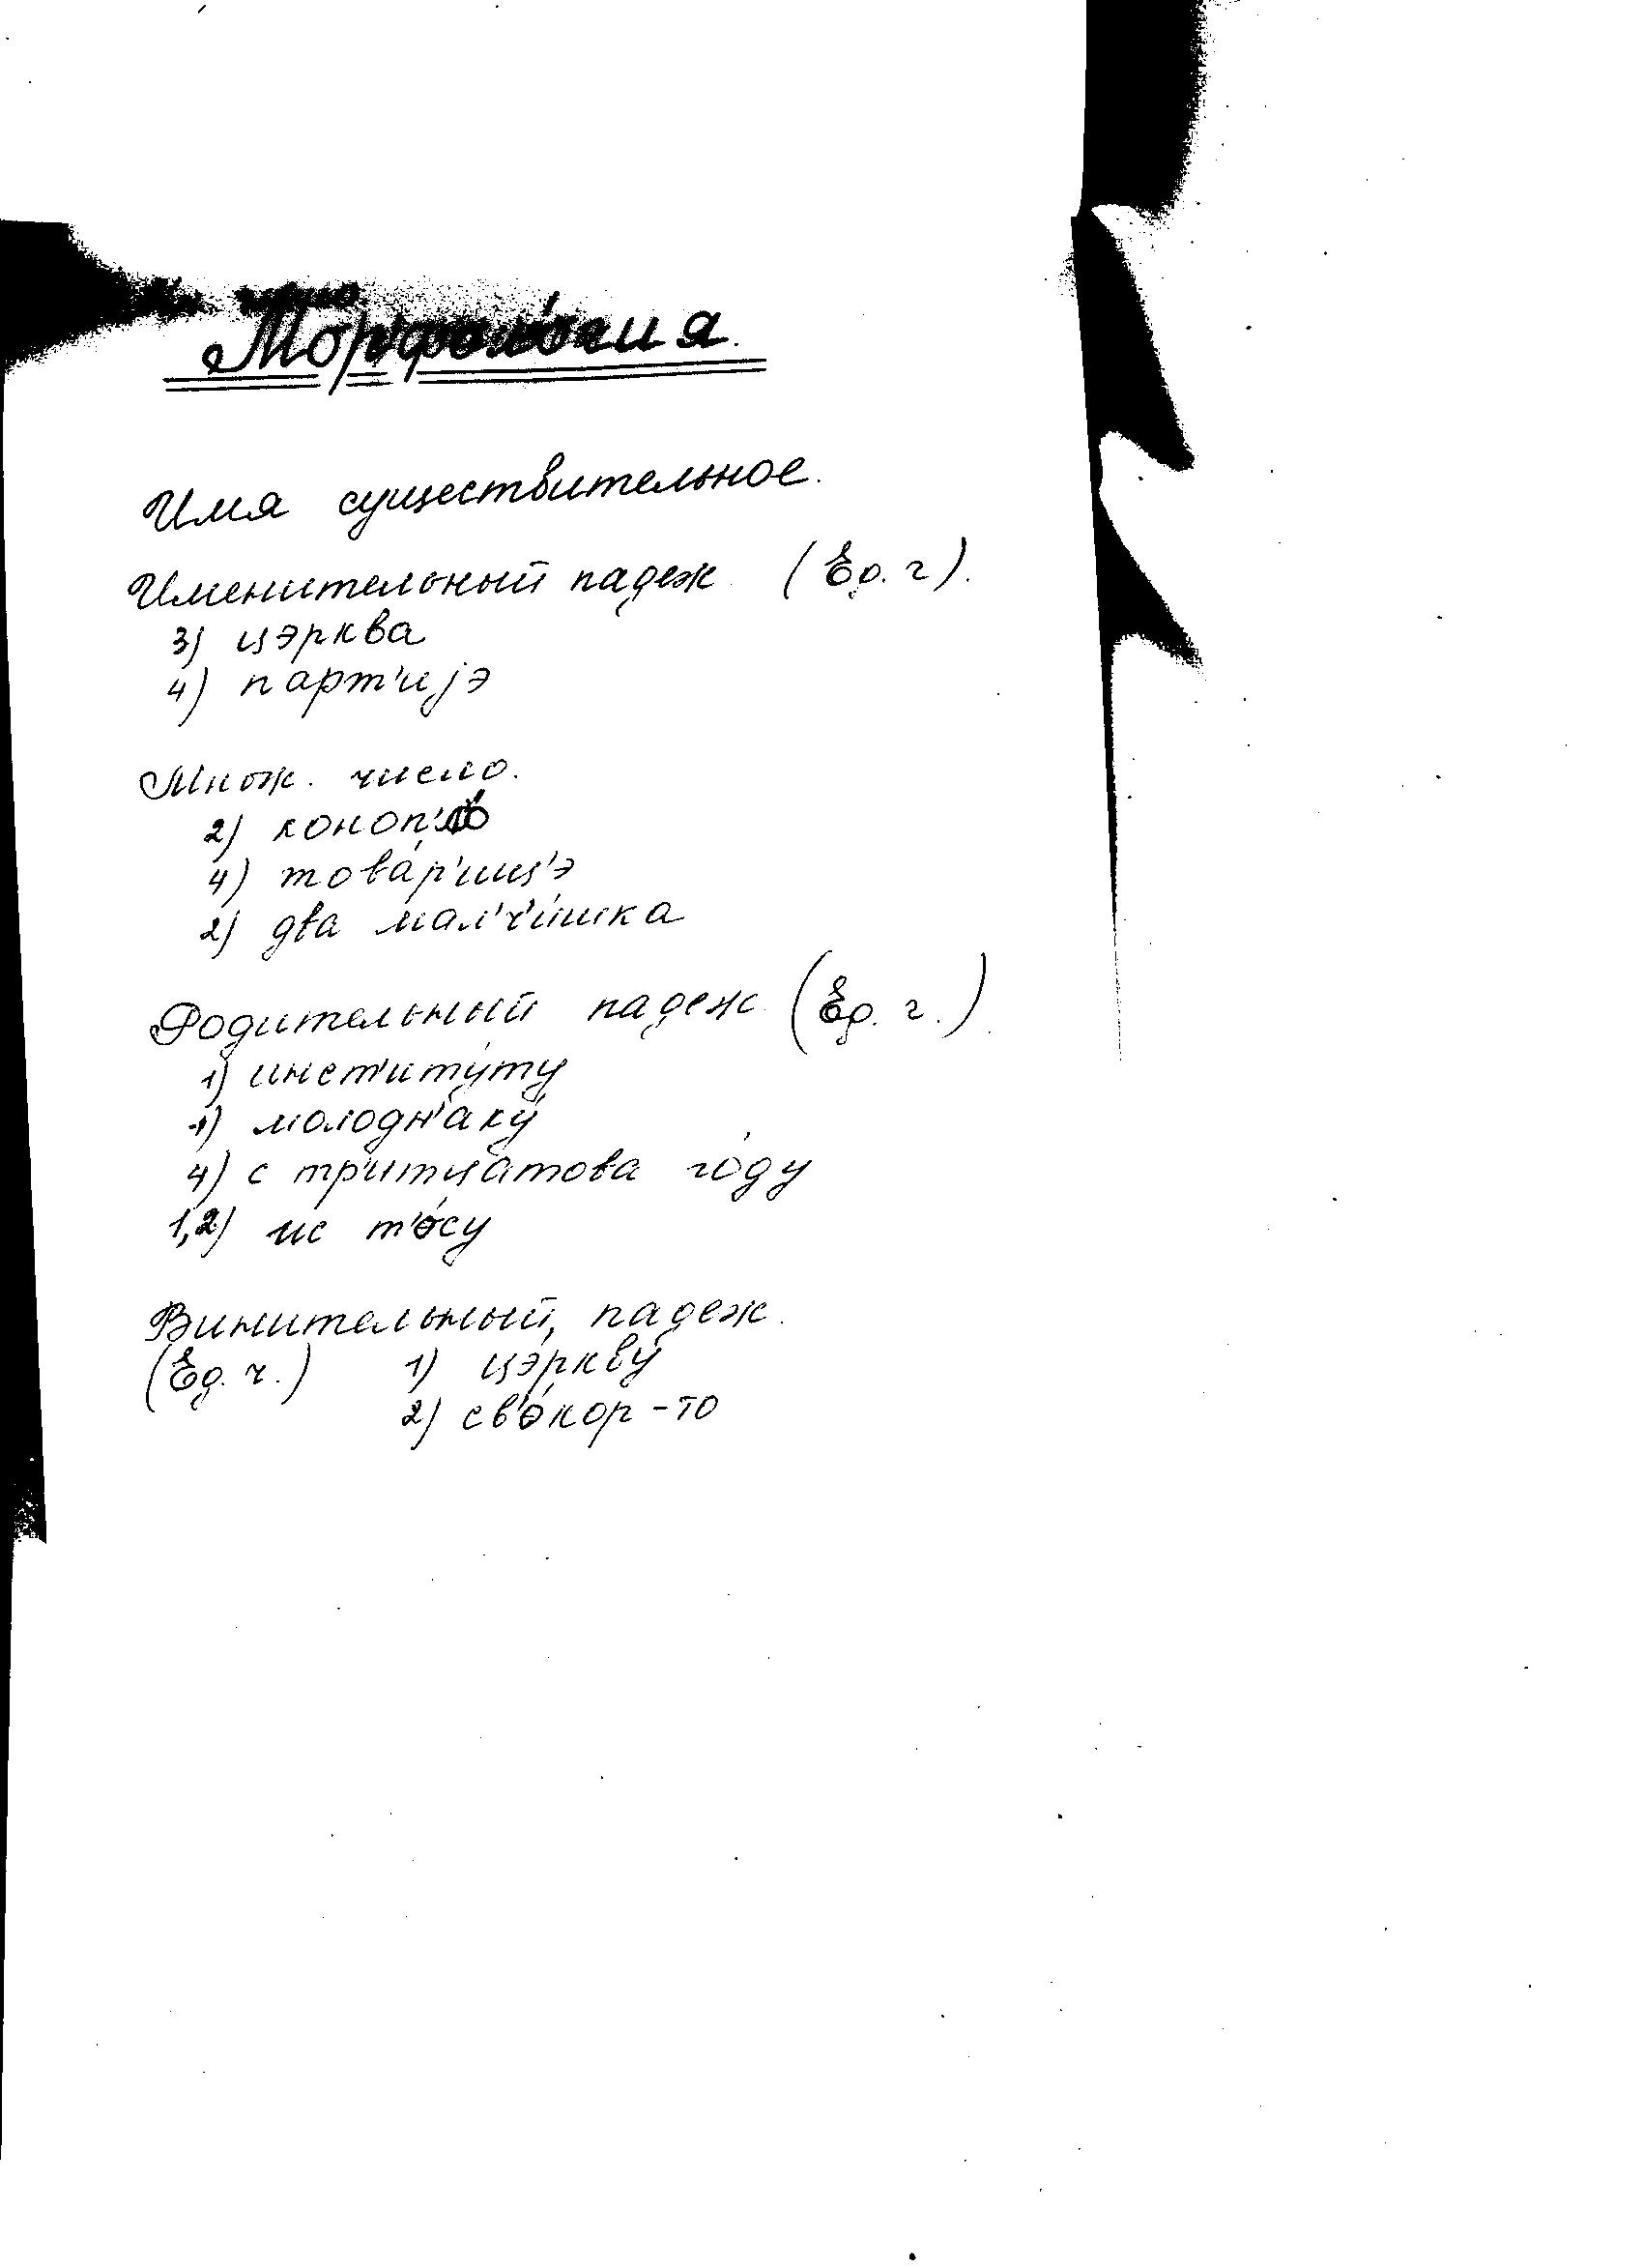 Морфология.
Имя существительное.
Именительный падеж (Ед. ч).
3) цэрква
4) парт'иjэ
Множ. число.
2)
4) това́р'ищ'э
2) два мал'ч'и́шка
Родительный падеж (Ед. ч.)
1) инст'иту́ту
1) молодн'аку́
4) с тр'ит'ца́това го́ду
1,2) ис т'о́су
Винительный падеж.
(Ед. ч.) 1) цэ́ркву́
2) св'о́кор-то